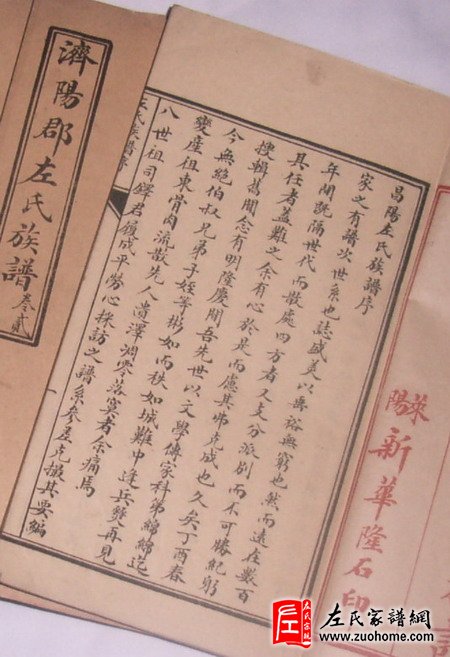 濟陽郡左氏族譜 卷貳
昌陽左氏族譜序
家之有譜次世系也誌盛美以垂裕無窮也然而遠在數百
年間既隔世代而散處四方者又支分派別而不可勝紀躬
其任者蓋難之余有心於是而慮其弗克成也久矣丁酉春
搜輯舊聞念有明隆慶間吾先世以文學傳家科第綿綿迄
今無絕伯叔兄弟子姪等彬如而秩如城難中逢兵燹再見
變產祖東骨肉流散先人遺澤凋零落寞者余痛焉
八世祖司鐸君履成平勞心採訪之譜系參差克撮其要編
左氏族譜序
萊陽
新華隆石印
左氏宗親
左氏家譜網
www.zuohome.com